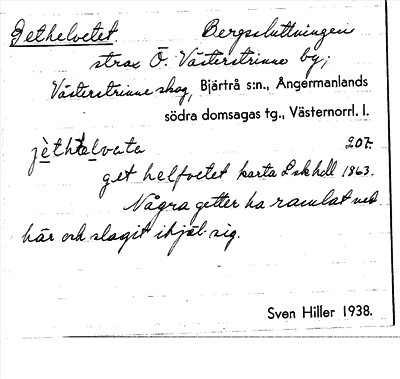 Gethelvetet. Bergssluttningen
strax Ö. Västerstrinne by;
Västerstrinne skog, Bjärtrå s:n., Ångermanlands
södra domsagas tg., Västernorrl. l.
207.
get helfvetet karta L sk hdl 1863.
Några getter ha ramlat ned
här och slagit ihjäl sig.
Sven Hiller 1938.